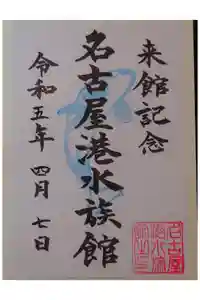 来館記念
名古屋港水族館
令和五年 四月 七日
名古屋